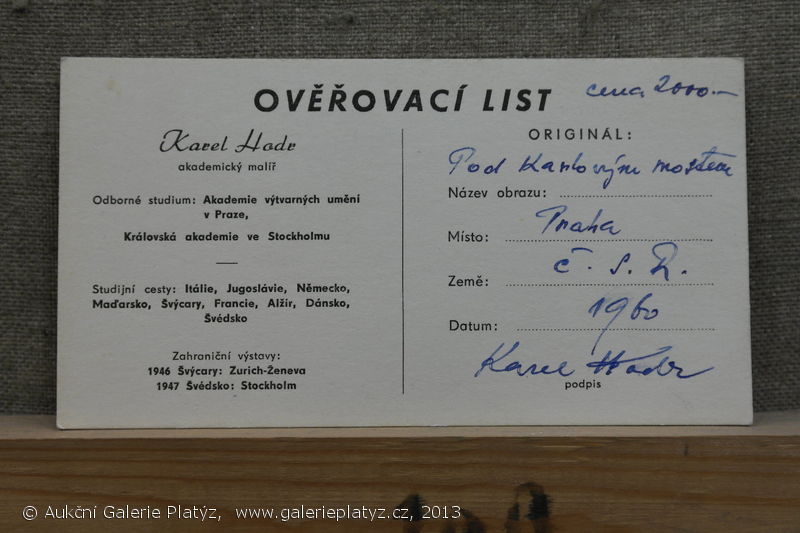 OVĚŘOVACÍ LIST
cena 2000.-
Karel Hodr
akademický malíř
Odborné studium: Akademie výtvarných umění
v Praze,
Královská akademie ve Stockholmu
Studijní cesty: Itálie, Jugoslávie, Německo,
Maďarsko, Švýcary, Francie, Alžír, Dánsko,
Švédsko
Zahraniční výstavy:
1946 Švýcary: Zurich-Ženeva
1947 Švédsko: Stockholm
ORIGINÁL:
Pod Karlovým mostem
Název obrazu:
Místo: Praha
Země: Č. S. R.
Datum: 1960
Karel Hodr
podpis
© Aukční Galerie Platýz, www.galerieplatyz.cz, 2013